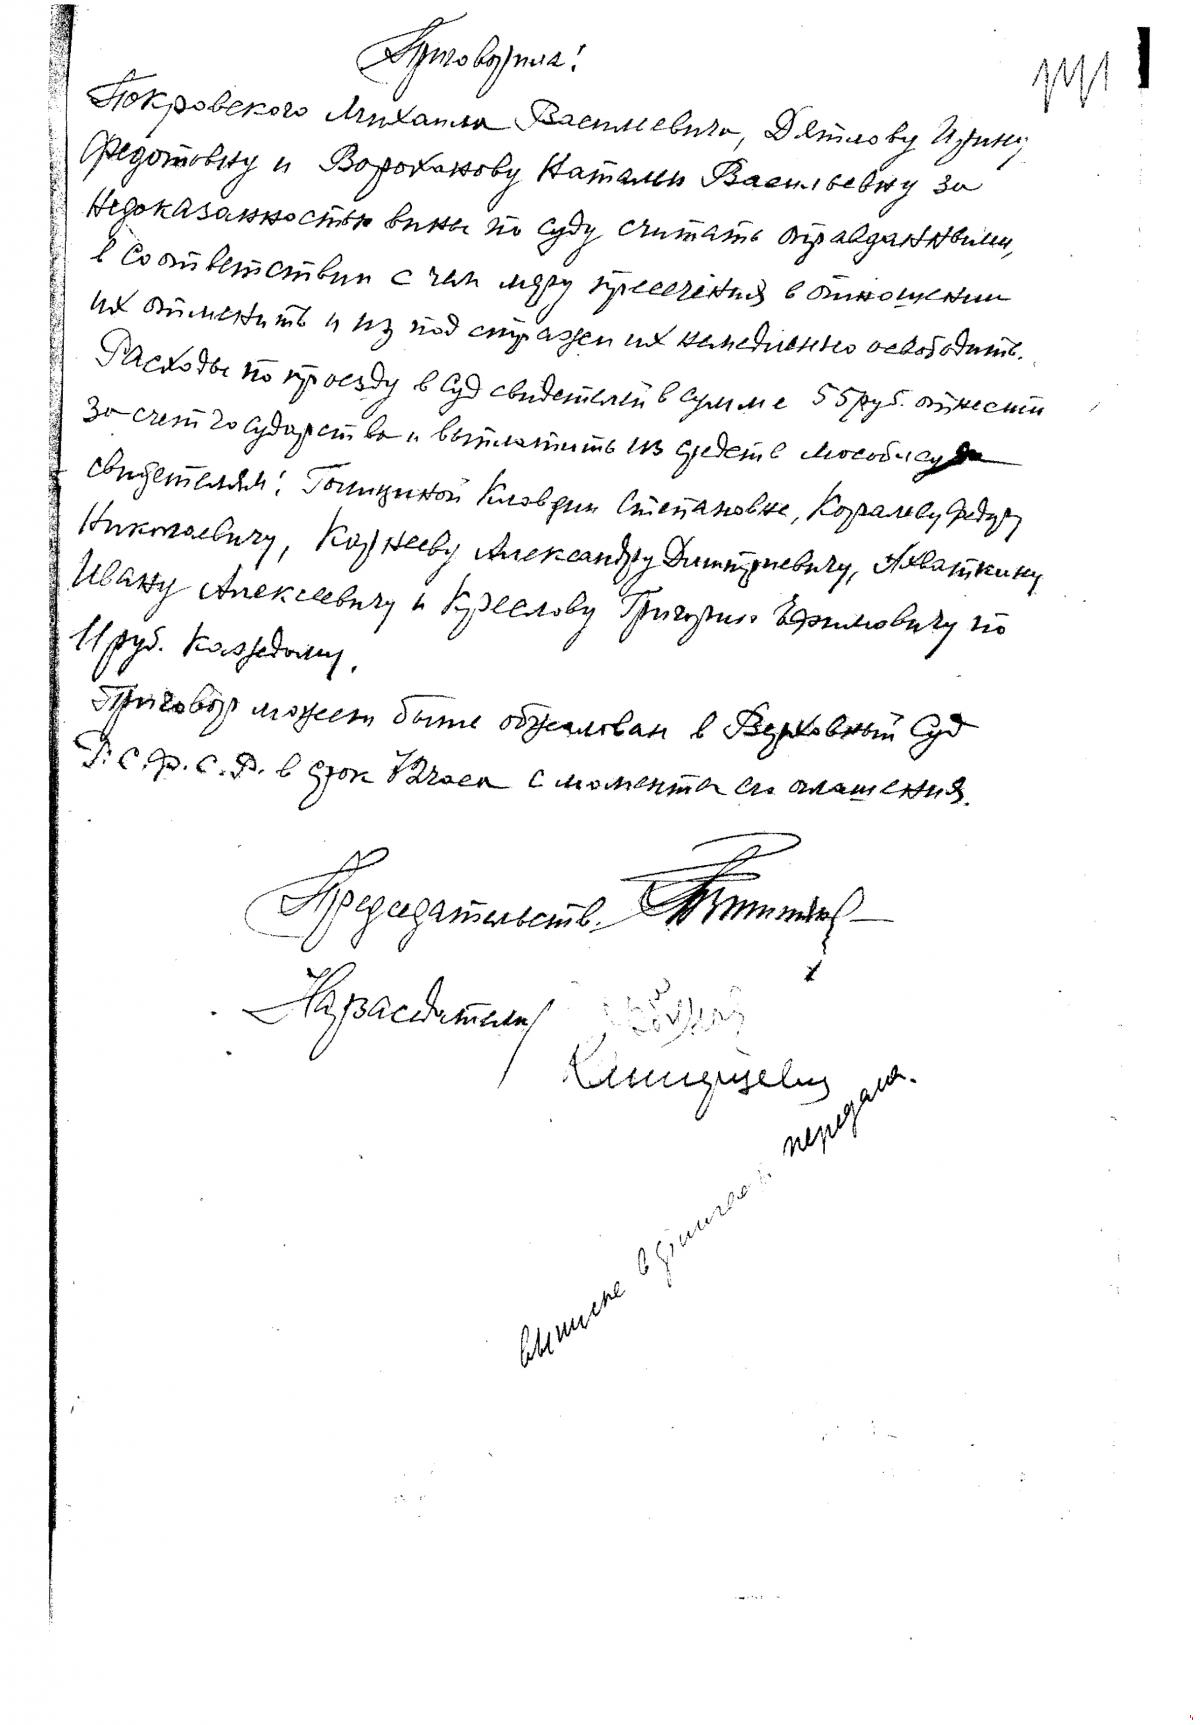 Приговорила:
Покровского Михаила Васильевича, Дятлову Ирину
Федотовну и Вороханову Наталью Васильевну за
недоказанностью вины по суду считать оправданными,
в соответствии с чем меру пресечения в отношении
их отменить и из под стражи их немедленно освободить.
Расходы по проезду в суд свидетелей в сумме 55 руб. отнести
за счет государства и выплатить из средств Мособлсуда
свидетелям: Клавдии Степановне, Королеву Федору
Николаевичу, Корнееву Александру Дмитриевичу, Ахваткину
Ивану Алексеевичу и Григорию Ефимовичу по
11 руб. каждому.
Приговор может быть обжалован в Верховный Суд
Р.С.Ф.С.Р. в срок 72 часа с момента его оглашения.
Председательств.
Нарзаседатели
передала.